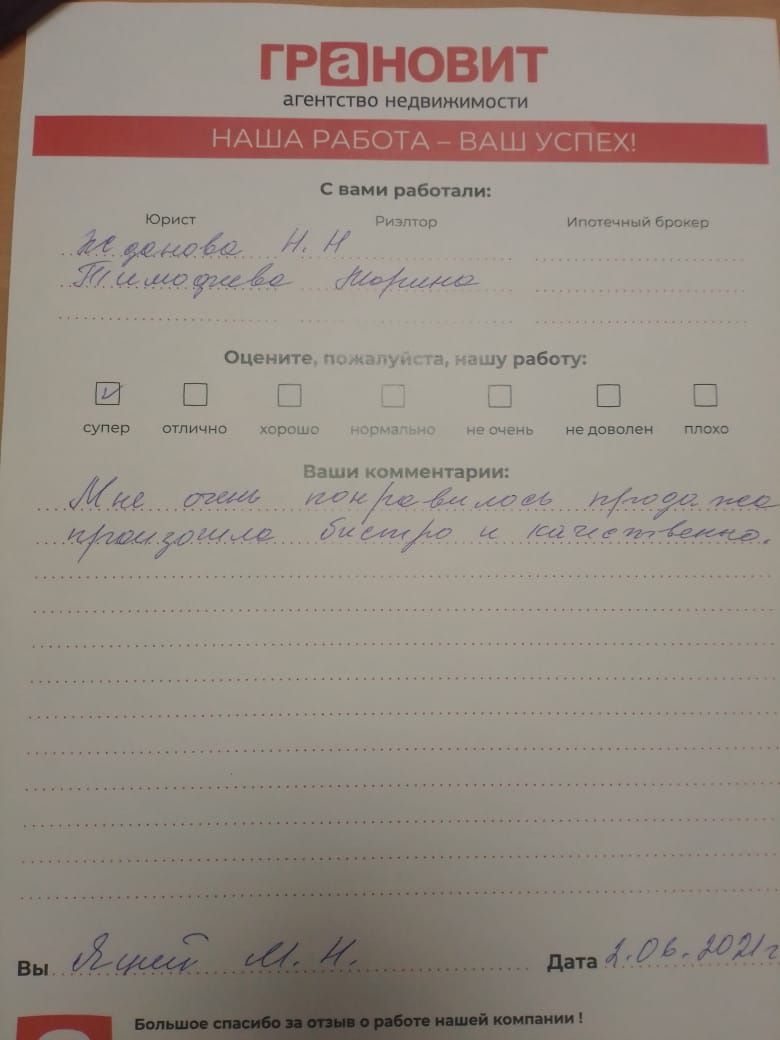 ГРаНОВИТ
агентство недвижимости
НАША РАБОТА – ВАШ УСПЕХ!
С вами работали:
Юрист Риэлтор Ипотечный брокер
Жданова Н. Н
Тимофиева
Оцените, пожалуйста, нашу работу:
супер отлично хорошо нормально не очень не доволен плохо
Ваши комментарии:
Мне очень понравилось продажа
произошла быстро и качественно.
Вы М. Н. Дата 2.06.2021г
Большое спасибо за отзыв о работе нашей компании !